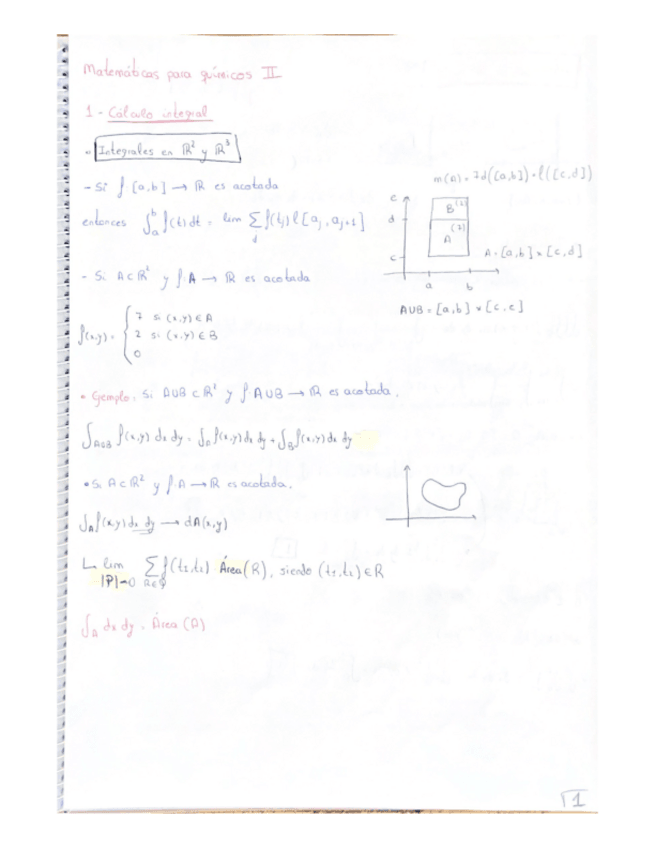 Matemáticas para químicos II
1- Cálculo integral
- Integrales en ℝ² y ℝ³
- Si f [a,b] → ℝ es acotada
entonces ∫ₐᵇ f(t) dt = lim Σ f(tj) l [aj, aj+1]
j
m(A) = 7d([a,b]) · l([c,d])
e
B (2)
d
(7)
A
c
a b
A = [a,b] x [c,d]
AUB = [a,b] x [c,e]
- Si A⊂ℝ² y f: A → ℝ es acotada
f(x,y) = { 7 si (x,y) ∈ A
2 si (x,y) ∈ B
0
• Ejemplo: Si AUB ⊂ ℝ² y f: AUB → ℝ es acotada.
∫AUB f(x,y) dx dy = ∫A f(x,y) dx dy + ∫B f(x,y) dx dy
• Si A⊂ℝ² y f: A → ℝ es acotada.
∫A f(x,y) dx dy → dA(x,y)
↳ lim Σ f(t1,t2) Área(R), siendo (t1,t2) ∈ R
|P|→0 R∈P
∫A dx dy = Área (A)
1